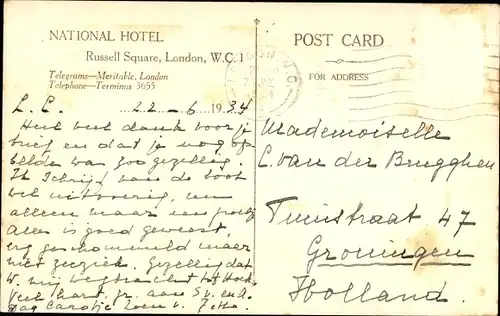 NATIONAL HOTEL
Russell Square, London, W.C.1
Telegrams—Meritable, London
Telephone—Terminus 3655
L. C. 22-6 1934
Heel veel dank voor je
brief en dat je nog op
belde was zoo gezellig.
Ik schrijf van de boot
wel uitvoerig, nu
alleen maar een
Alles is goed geweest,
erg geschommeld maar
niet geziek. Gezellig dat
W. mij wegbracht tot Hoek.
Veel hart. gr. aan
Dag Carotje zoen v.
POST CARD
FOR ADDRESS
Mademoiselle
C. van der Brugghen
Tuinstraat 47
Groningen
Holland.